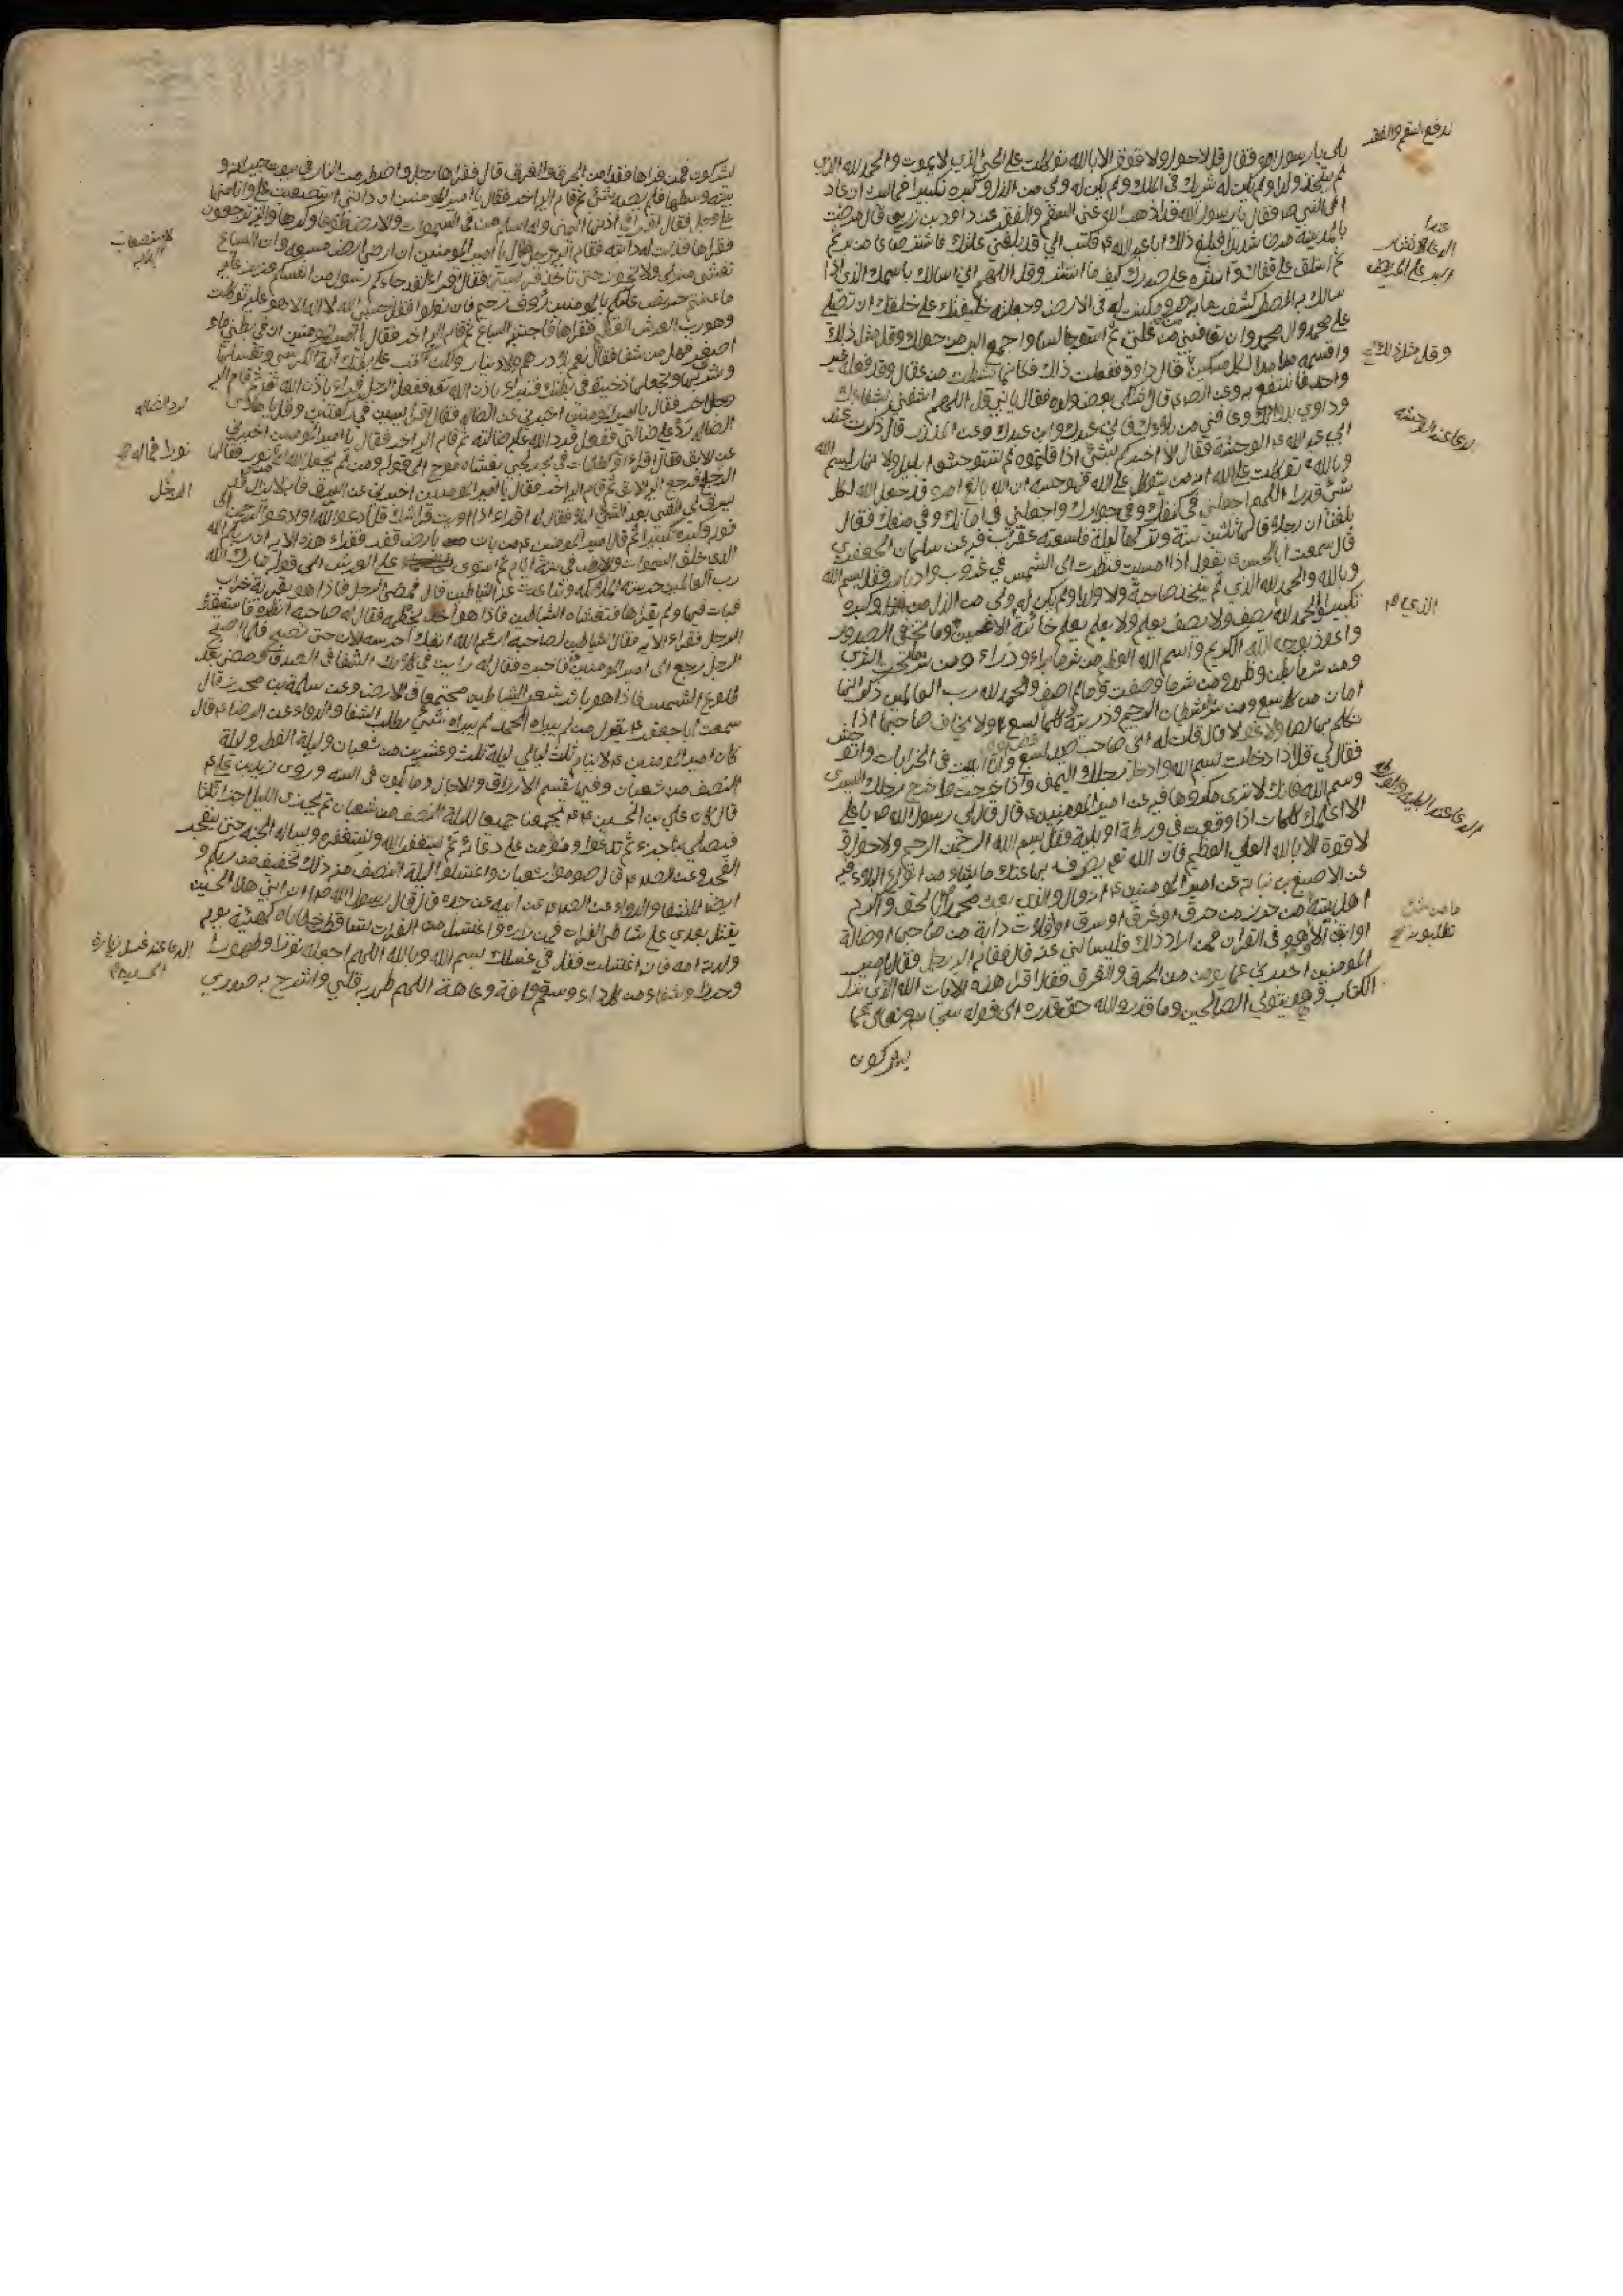 لدفع السقم والفقر
بلى يا رسول الله فقال قل لا حول ولا قوة الا بالله توكلت على الحي الذي لا يموت والحمد لله الذي
لم يتخذ ولدا ولم يكن له شريك في الملك ولم يكن له ولي من الذل وكبره تكبيرا فما لبث ان عاد
الى النبي ص فقال يا رسول الله قد اذهب الله عني السقم والفقر عن داود بن زربي قال مرضت
بالمدينة مرضا شديدا فبلغ ذلك ابا عبد الله ع فكتب الي قد بلغني علتك فاشتر صاعا من بر ثم
ثم استلق على قفاك وانثره على صدرك كيف ما انتثر وقل اللهم اني اسالك باسمك الذي اذا
سالك به المضطر كشفت ما به من ضر ومكنت له في الارض وجعلته خليفتك على خلقك ان تصلي
على محمد وال محمد وان تعافيني من علتي ثم استو جالسا واجمع البر من حولك وقل مثل ذلك
واقسمه مدا مدا لكل مسكين قال داود ففعلت ذلك فكانما نشطت من عقال وقد فعله غير
واحد فانتفع به وعن الصادق قال اشتكى بعض ولده فقال يا بني قل اللهم اشفني بشفائك
وداوني بدوائك وعافني من بلاؤك فاني عبدك وابن عبدك وعن المنذر قال ذكرت عند
ابي عبد الله ع الوحشة فقال الا اخبركم بشئ اذا قلتموه لم تستوحشوا بليل ولا نهار بسم الله
وبالله توكلت على الله انه من يتوكل على الله فهو حسبه ان الله بالغ امره قد جعل الله لكل
شئ قدرا اللهم اجعلني في كنفك وفي جوارك واجعلني في امانك وفي منعك فقال
بلغنا ان رجلا قالها ثلثين سنة وتركها ليلة فلسعته عقرب عن سليمان الجعفري
قال سمعت ابا الحسن ع يقول اذا امسيت فنظرت الى الشمس في غروب وادبار فقل بسم الله
وبالله والحمد لله الذي لم يتخذ صاحبة ولا ولدا ولم يكن له ولي من الذل وكبره
تكبيرا والحمد لله يصف ولا يوصف ويعلم ولا يعلم يعلم خائنة الاعين وما تخفي الصدور
واعوذ بوجه الله الكريم وباسم الله العظيم من شر ما براء وذراء ومن شر ما تحت الثرى
ومن شر ما بطن وظهر ومن شر ما وصفت وما لم اصف والحمد لله رب العالمين ذكر انها
امان من كل سبع ومن شر الشيطان الرجيم وذريته وكلما لسع ولا يخاف صاحبها اذا
تكلم بها لصا ولا غولا قال قلت له اني صاحب صيد السبع وانا ابيت في الخرابات واتوحش
فقال لي قل اذا دخلت بسم الله وادخل رجلك اليمنى واذا خرجت فاخرج رجلك اليسرى
وسم الله فانك لا ترى مكروها عن امير المؤمنين ع قال قال لي رسول الله ص يا علي
الا اعلمك كلمات اذا وقعت في ورطة او بلية فقل بسم الله الرحمن الرحيم ولا حول و
لا قوة الا بالله العلي العظيم فان الله تعالى يصرف بها عنك ما يشاء من انواع البلاء
عن الاصبغ بن نباتة عن امير المؤمنين ع انه قال والذي بعث محمدا بالحق واكرم
اهل بيته ما من حرز من حرق او غرق او سرق او افلات دابة من صاحبها او ضالة
او ابق الا وهو في القران فمن اراد ذلك فليسالني عنه قال فقام اليه رجل فقال يا امير
المؤمنين اخبرني عما يؤمن من الحرق والغرق فقال اقرا هذه الايات الله الذي نزل
الكتاب وهو يتولى الصالحين وما قدروا الله حق قدره الى قوله سبحانه وتعالى عما
يشركون
الدعاء عند الوحشة
وقل مثل ذلك
الذي
ما من حرز
تطلبونه
يشركون فمن قراها فقد امن الحرق والغرق قال فقراها رجل واضطرمت النار في بيوت جيرانه و
بيته وسطها فلم يصبه شئ ثم قام اليه اخر فقال يا امير المؤمنين ان دابتي استصعبت علي وانا منها
على وجل فقال اقرا في اذنها اليمنى وله اسلم من في السموات والارض طوعا وكرها واليه ترجعون
فقراها فذلت له دابته فقام اليه رجل فقال يا امير المؤمنين ان ارضي ارض مسبعة وان السباع
تغشى منزلي ولا تجوز حتى تاخذ فريستها فقال اقرا لقد جاءكم رسول من انفسكم عزيز عليه
ما عنتم حريص عليكم بالمؤمنين رؤف رحيم فان تولوا فقل حسبي الله لا اله الا هو عليه توكلت
وهو رب العرش العظيم فقراها فاجتنبه السباع ثم قام اليه اخر فقال يا امير المؤمنين ان في بطني ماء
اصفر فهل من شفا فقال نعم بلا درهم ولا دينار ولكن اكتب على بطنك اية الكرسي وتغسلها
وتشربها وتجعلها ذخيرة في بطنك فتبراء باذن الله تعالى ففعل الرجل فبراء باذن الله تعالى ثم قام اليه
رجل اخر فقال يا امير المؤمنين اخبرني عن الضالة فقال اقرا يسين في ركعتين وقل يا هادي
الضالة رد علي ضالتي ففعل فرد الله عليه ضالته ثم قام اليه اخر فقال يا امير المؤمنين اخبرني
عن الابق فقال اقراء او كظلمات في بحر لجي يغشاه موج الى قوله ومن لم يجعل الله له نورا فقالها
الرجل فرجع اليه الابق ثم قام اليه اخر فقال يا امير المؤمنين اخبرني عن السرق فانه لا يزال قد
يسرق لي الشئ بعد الشئ ليلا فقال له اقراء اذا اويت فراشك قل ادعوا الله او ادعوا الرحمن الى
قوله وكبره تكبيرا ثم قال امير المؤمنين ع من بات بارض قفر فقراء هذه الاية ان ربكم الله
الذي خلق السموات والارض في ستة ايام ثم استوى على العرش الى قوله تبارك الله
رب العالمين حرسته الملائكة وتباعدت عنه الشياطين قال فمضى الرجل فاذا هو بقرية خراب
فبات فيها ولم يقراها فتغشاه الشياطين فاذا هو اخذ بخطمه فقال له صاحبه انظره فاستيقظ
الرجل فقراء الاية فقال الشيطان لصاحبه ارغم الله انفك احرسه الان حتى يصبح فلما اصبح
الرجل رجع الى امير المؤمنين فاخبره فقال له رايت في كلامك الشفا في الصدق ومضى بعد
طلوع الشمس فاذا هو باثر شعر الشياطين مجتمعا في الارض وعن سلمة بن محرز قال
سمعت ابا جعفر ع يقول من لم يبراه الحمد لم يبراه شئ مطلب الشفا والدواء عن الرضا ع قال
كان امير المؤمنين ع لا ينام ثلث ليالي ليلة ثلث وعشرين من شعبان وليلة الفطر وليلة
النصف من شعبان وفيها تقسم الارزاق والاجال وما يكون في السنه وروى زيد بن علي ع
قال كان علي بن الحسين ع يجمعنا جميعا ليلة النصف من شعبان ثم يجزئ الليل اجزاء ثلثا
فيصلي بنا جزء ثم يدعوا ونؤمن على دعائه ثم يستغفر الله ونستغفره ونساله الجنه حتى ينفجر
الفجر وعن الصادق ع قال صوموا شعبان واغتسلوا ليلة النصف منه ذلك تخفيف من ربكم و
ايضا للشفا والدواء عن الصادق عن ابيه عن جده قال قال رسول الله ص ان ابني هذا الحسين
يقتل بعدي على شاطئ الفرات فمن زاره واغتسل من الفرات تساقط خطاياه كهيئة يوم
ولدته امه فاذا اغتسلت فقل في غسلك بسم الله وبالله اللهم اجعله نورا وطهورا
وحرزا وشفاء من كل داء وسقم وافة وعاهة اللهم طهر به قلبي واشرح به صدري
لاستصعاب
لرد الضالة
الرجل
الدعاء عند غسل زيارة
الحسين ع